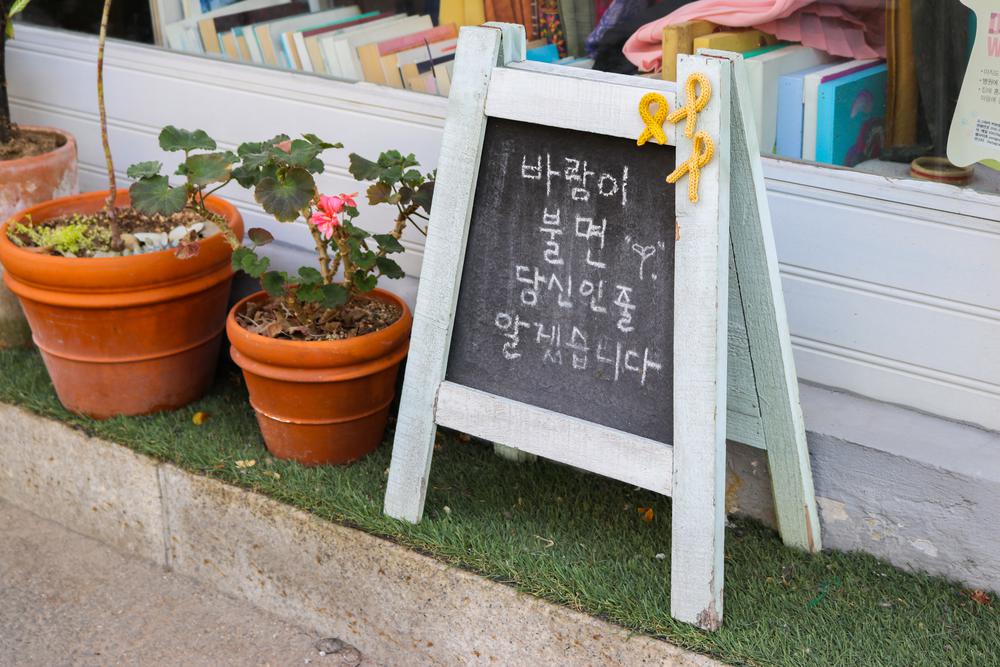 바람이
불면
당신인줄
알겠습니다